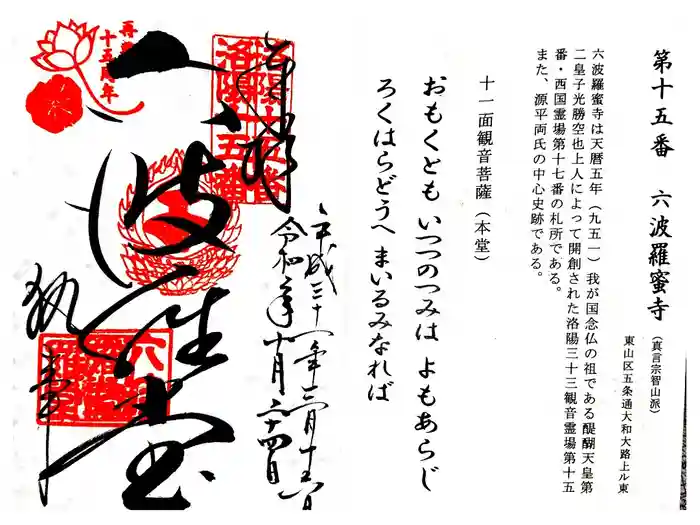 第十五番 六波羅蜜寺
(真言宗智山派)
東山区五条通大和大路上ル東
六波羅蜜寺は天暦五年(九五一)我が国念仏の祖である醍醐天皇第
二皇子光勝空也上人によって開創された洛陽三十三観音霊場第十五
番・西国霊場第十七番の札所である。
また、源平両氏の中心史跡である。
十一面観音菩薩(本堂)
おもくとも いつつのつみは よもあらじ
ろくはらどうへ まいるみなれば
平成三十一年三月十六日
令和二年十月二十四日
奉拝
洛陽十五番
六波羅堂
十五周年